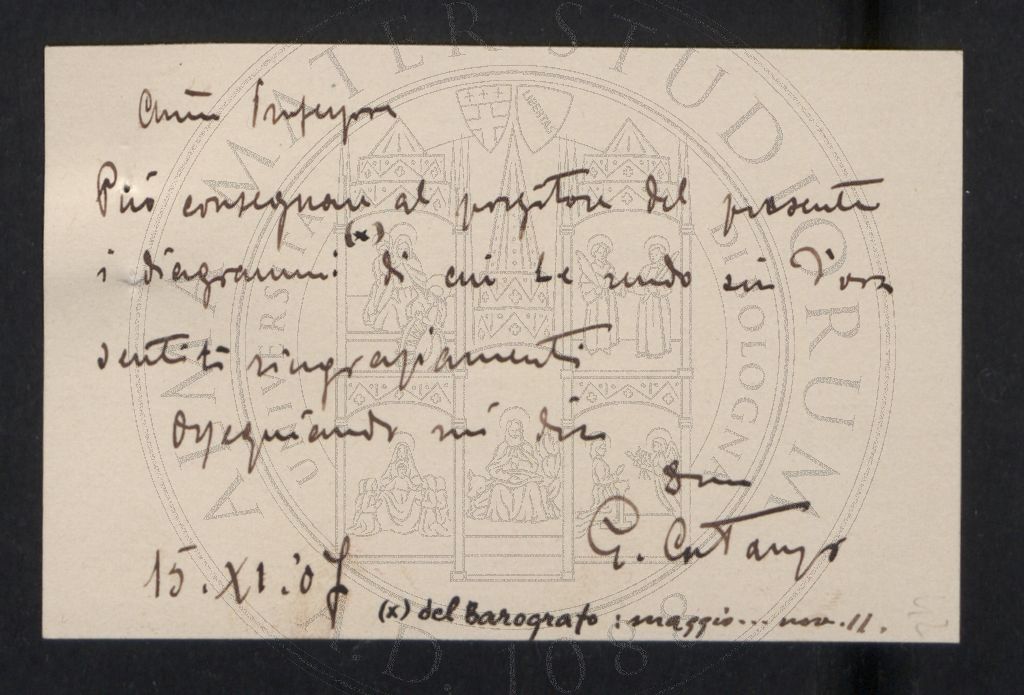 Può consegnare al porgitore del presente
i diagrammi (x) di cui Le rendo sin d'ora
sentiti ringraziamenti
Ossequiando mi dico
Suo
G. Cattaneo
15.XI.'07
(x) del Barografo : maggio... nov. 11.
ALMA MATER STUDIORUM
UNIVERSITÀ DI BOLOGNA
LIBERTAS
A.D. 1088